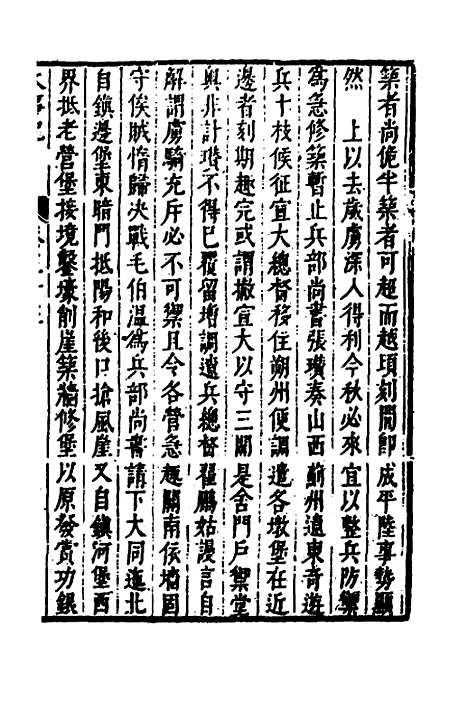 築者尚傀半築者可超而越頃刻間即成平陸事勢顯
然　上以去歲虜深入得利今秋必來宜以整兵防禦
為急修築暫止兵部尚書張瓚奏山西薊州遼東奇遊
兵十枝候征宣大總督移住朔州便調遣各墩堡在近
邊者刻期趣完或謂撤宣大以守三關是舍門戶禦堂
奧非計瓚不得已覆留增調遣兵總督翟鵬姑謾言自
解謂虜騎充斥必不可禦且令各營急趣關南依墻固
守俟賊惰歸決戰毛伯溫為兵部尚書請下大同迤北
自鎮邊堡東暗門抵陽和後口搶風崖又自鎮河堡西
界抵老營堡接境鑿壕削崖築墻修堡以原發賞功銀